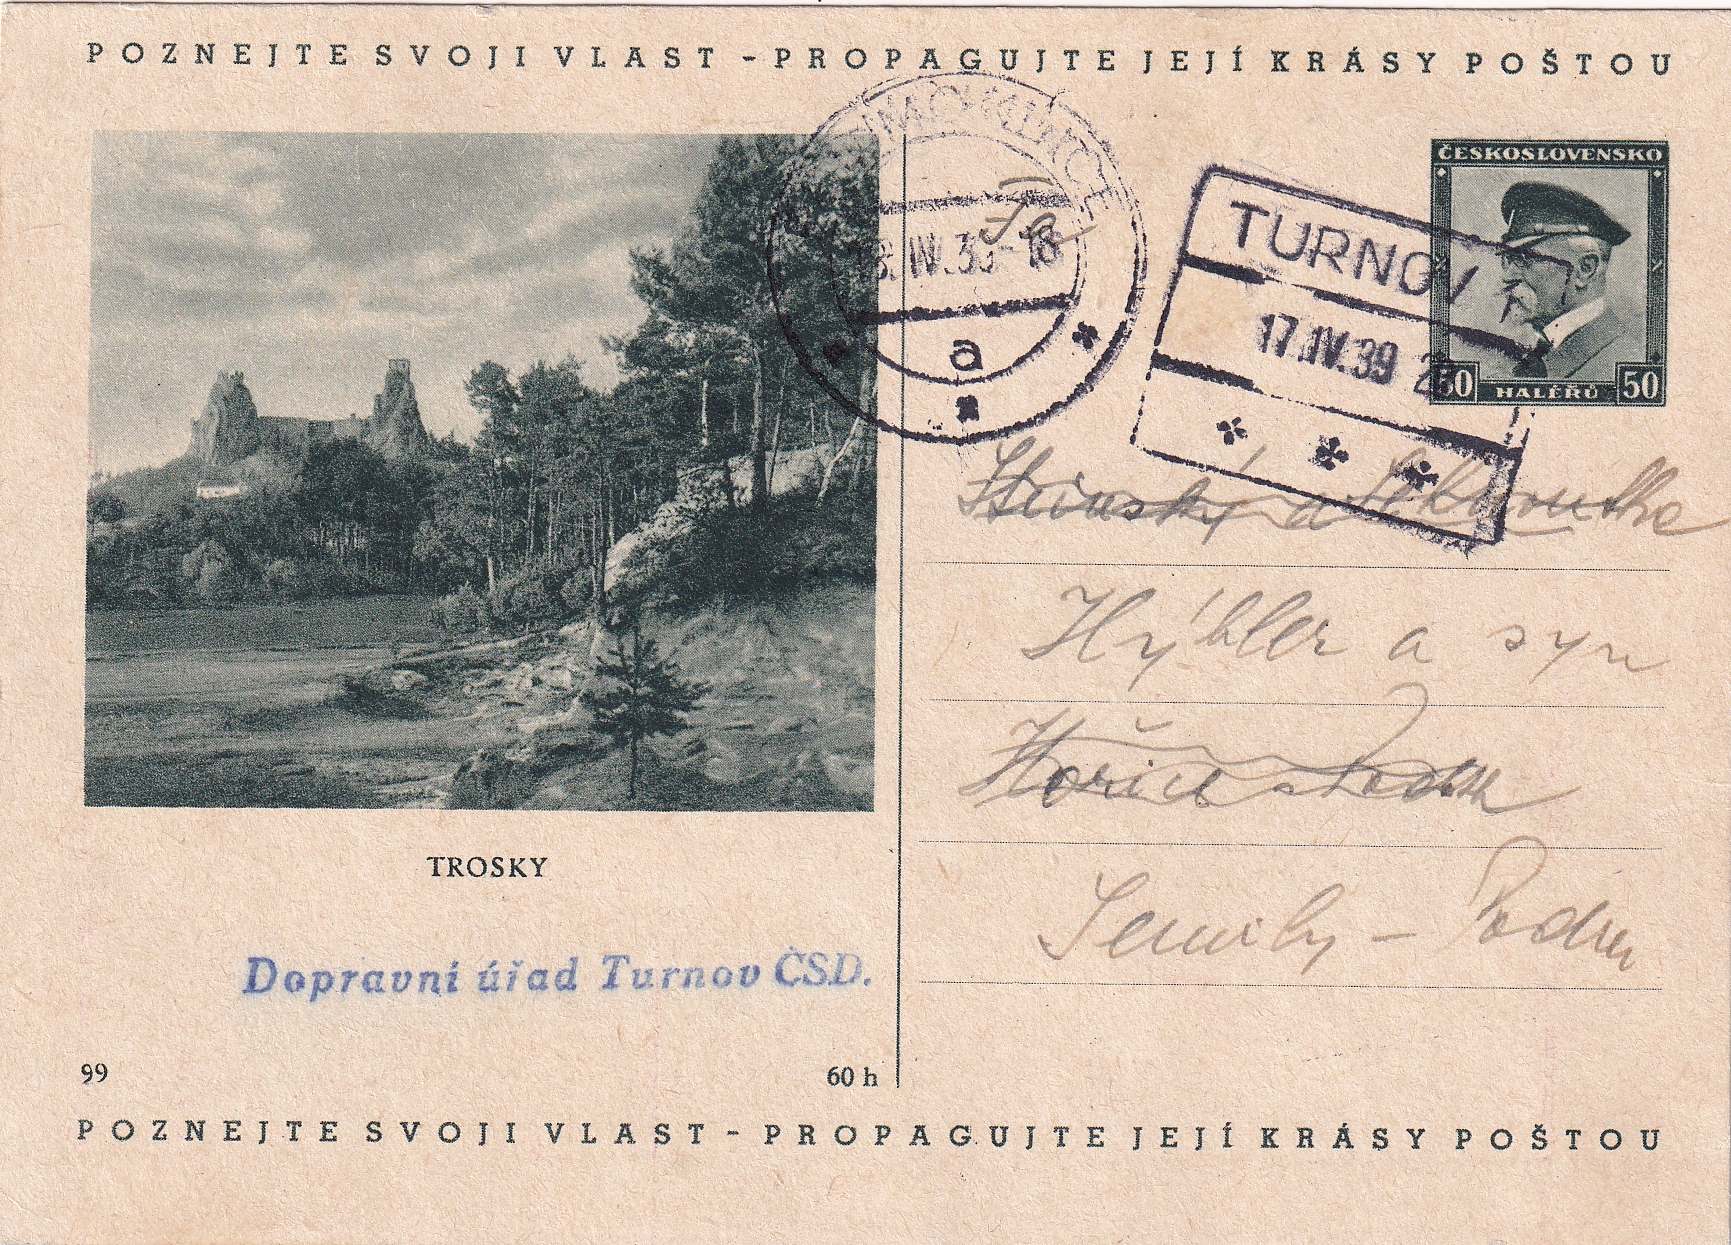 POZNEJTE SVOJI VLAST - PROPAGUJTE JEJÍ KRÁSY POŠTOU
ČESKOSLOVENSKO
50 HALÉŘŮ 50
TURNOV
17.IV.39 2
IV.39-18
a
a
Hýbler a syn
Hořice
Semily -
TROSKY
Dopravní úřad Turnov ČSD.
99
60 h
POZNEJTE SVOJI VLAST - PROPAGUJTE JEJÍ KRÁSY POŠTOU